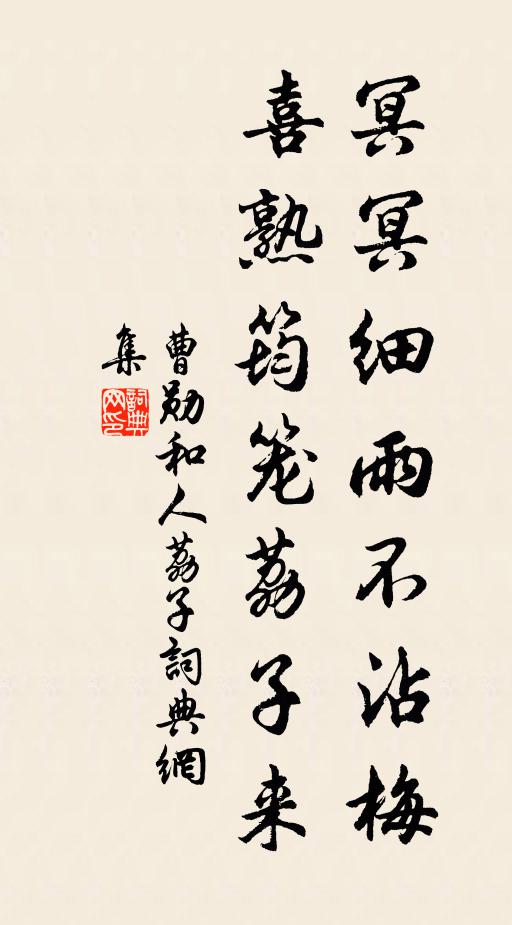 冥冥细雨不沾梅
喜熟筠笼荔子来
曹勋和人荔子詞典網
集
詞典
网印